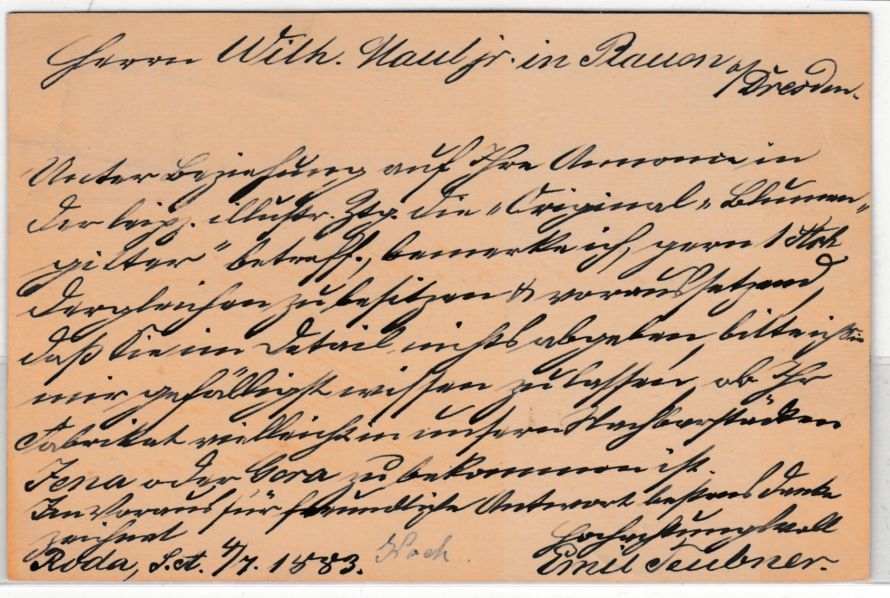 Herrn Wilh. Maul jr. in Plauen
b/Dresden.
Unter Beziehung auf Ihre Annonce in
der leipz. illustr. Ztg. die „Original-Blumen-
gitter" betreff., bemerke ich, gern 1 Stck
dergleichen zu besitzen & voraussetzend,
daß Sie im Detail nichts abgeben, bitte ich Sie
mir gefälligst wissen zu lassen, ob Ihr
Fabrikat vielleicht in unsern Nachbarstädten
Jena oder Gera zu bekommen ist.
Im Voraus für freundligste Antwort bestens dankend
zeichnet Hochachtungsvoll
Roda, S.A. 4/7. 1883. Emil Teubner.